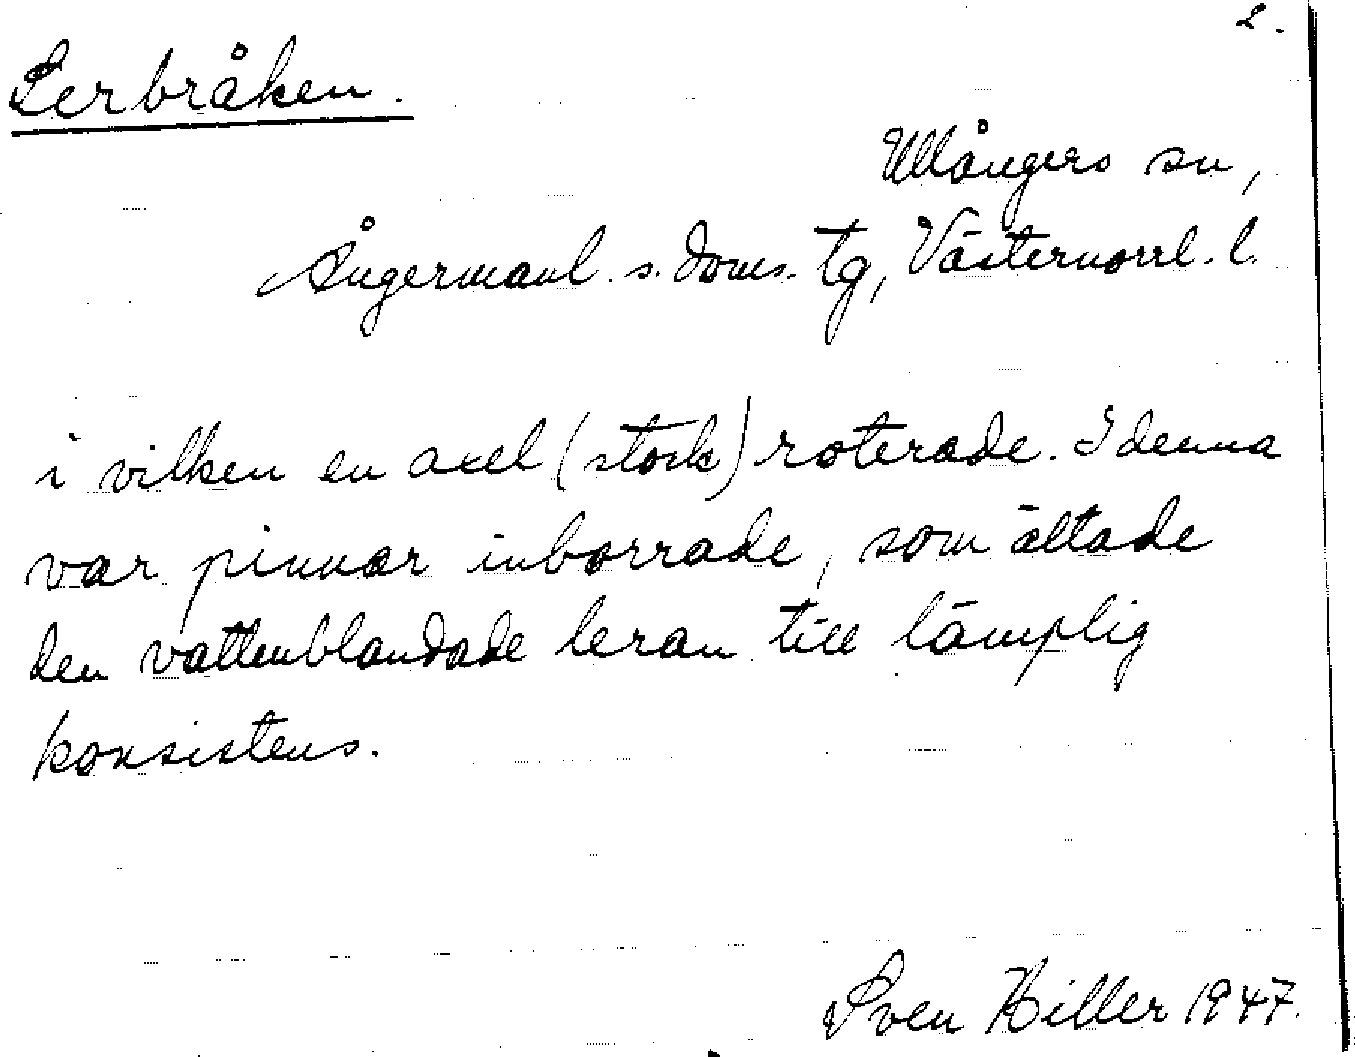 2.
Lerbråken.
Ullångers sn,
Ångermanl. s. doms. tg, Västernorrl. l.
i vilken en axel (stock) roterade. I denna
var pinnar inborrade, som ältade
den vattenblandade leran till lämplig
konsistens.
Sven Hiller 1947.